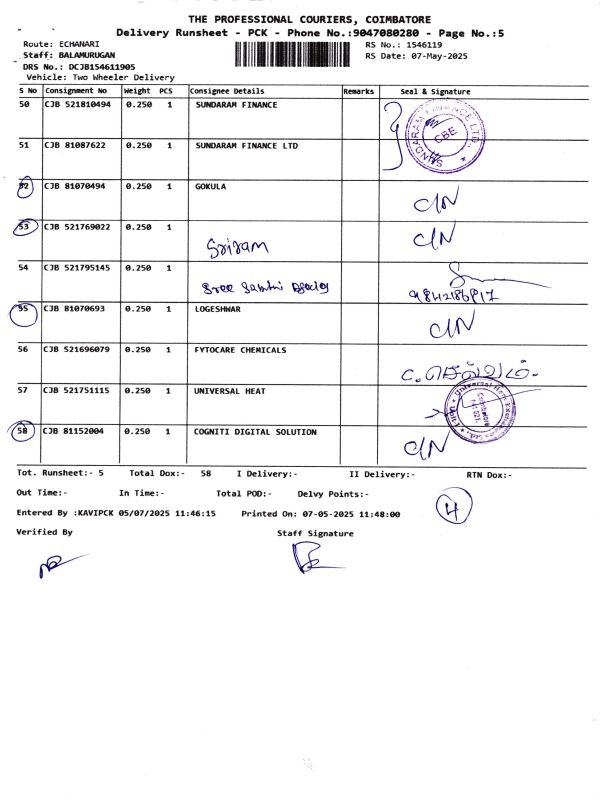 THE PROFESSIONAL COURIERS, COIMBATORE
Delivery Runsheet - PCK - Phone No.:9047080280 - Page No.:5
Route: ECHANARI RS No.: 1546119
Staff: BALAMURUGAN RS Date: 07-May-2025
DRS No.: DCJB154611905
Vehicle: Two Wheeler Delivery
S No Consignment No Weight PCS Consignee Details Remarks Seal & Signature
50 CJB 521810494 0.250 1 SUNDARAM FINANCE
CBE
51 CJB 81087622 0.250 1 SUNDARAM FINANCE LTD
52 CJB 81070494 0.250 1 GOKULA C/N
53 CJB 521769022 0.250 1 Sriram C/N
54 CJB 521795145 0.250 1 Sree
55 CJB 81070693 0.250 1 LOGESHWAR C/N
56 CJB 521696079 0.250 1 FYTOCARE CHEMICALS
57 CJB 521751115 0.250 1 UNIVERSAL HEAT
58 CJB 81152004 0.250 1 COGNITI DIGITAL SOLUTION C/N
Tot. Runsheet:- 5 Total Dox:- 58 I Delivery:- II Delivery:- RTN Dox:-
Out Time:- In Time:- Total POD:- Delvy Points:-
4
Entered By :KAVIPCK 05/07/2025 11:46:15 Printed On: 07-05-2025 11:48:00
Verified By Staff Signature